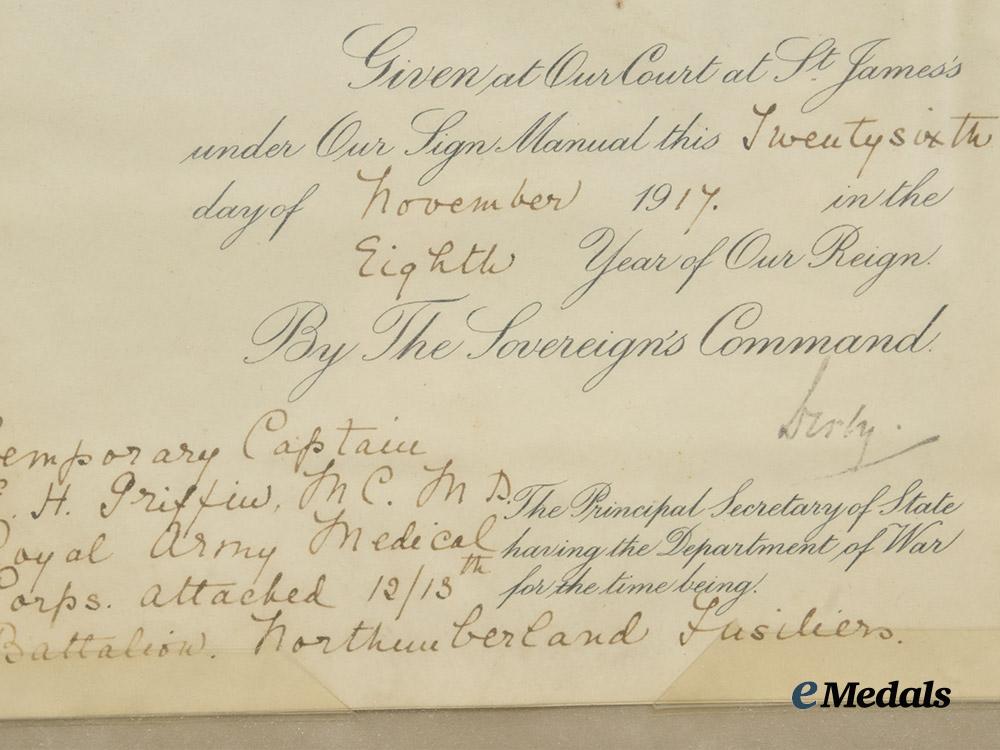 Given at Our Court at St. James's
under Our Sign Manual this Twentysixth
day of November 1917. in the
Eighth Year of Our Reign.
By The Sovereign's Command.
Derby.
emporary Captain
. H. Griffin, M C. M D.
oyal Army Medical
orps. attached 12/13th
Battalion. Northumberland Fusiliers.
The Principal Secretary of State
having the Department of War
for the time being.
eMedals